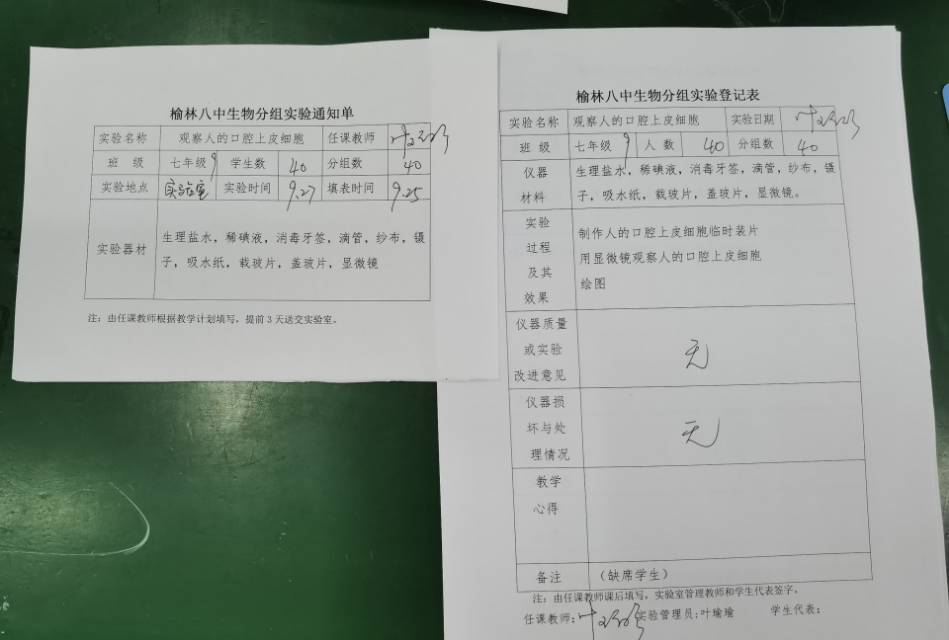 榆林八中生物分组实验通知单
实验名称 观察人的口腔上皮细胞 任课教师
班 级 七年级9 学生数 40 分组数 40
实验地点 实验室 实验时间 9.27 填表时间 9.25
实验器材 生理盐水，稀碘液，消毒牙签，滴管，纱布，镊
子，吸水纸，载玻片，盖玻片，显微镜
注：由任课教师根据教学计划填写，提前3天送交实验室。
榆林八中生物分组实验登记表
实验名称 观察人的口腔上皮细胞 实验日期
班 级 七年级9 人 数 40 分组数 40
仪器
材料
生理盐水，稀碘液，消毒牙签，滴管，纱布，镊
子，吸水纸，载玻片，盖玻片，显微镜。
实验
过程
及其
效果
制作人的口腔上皮细胞临时装片
用显微镜观察人的口腔上皮细胞
绘图
仪器质量
或实验
改进意见
无
仪器损
坏与处
理情况
无
教学
心得
备注 （缺席学生）
注：由任课教师课后填写，实验室管理教师和学生代表签字。
任课教师： 实验管理员：叶瑜瑜 学生代表：